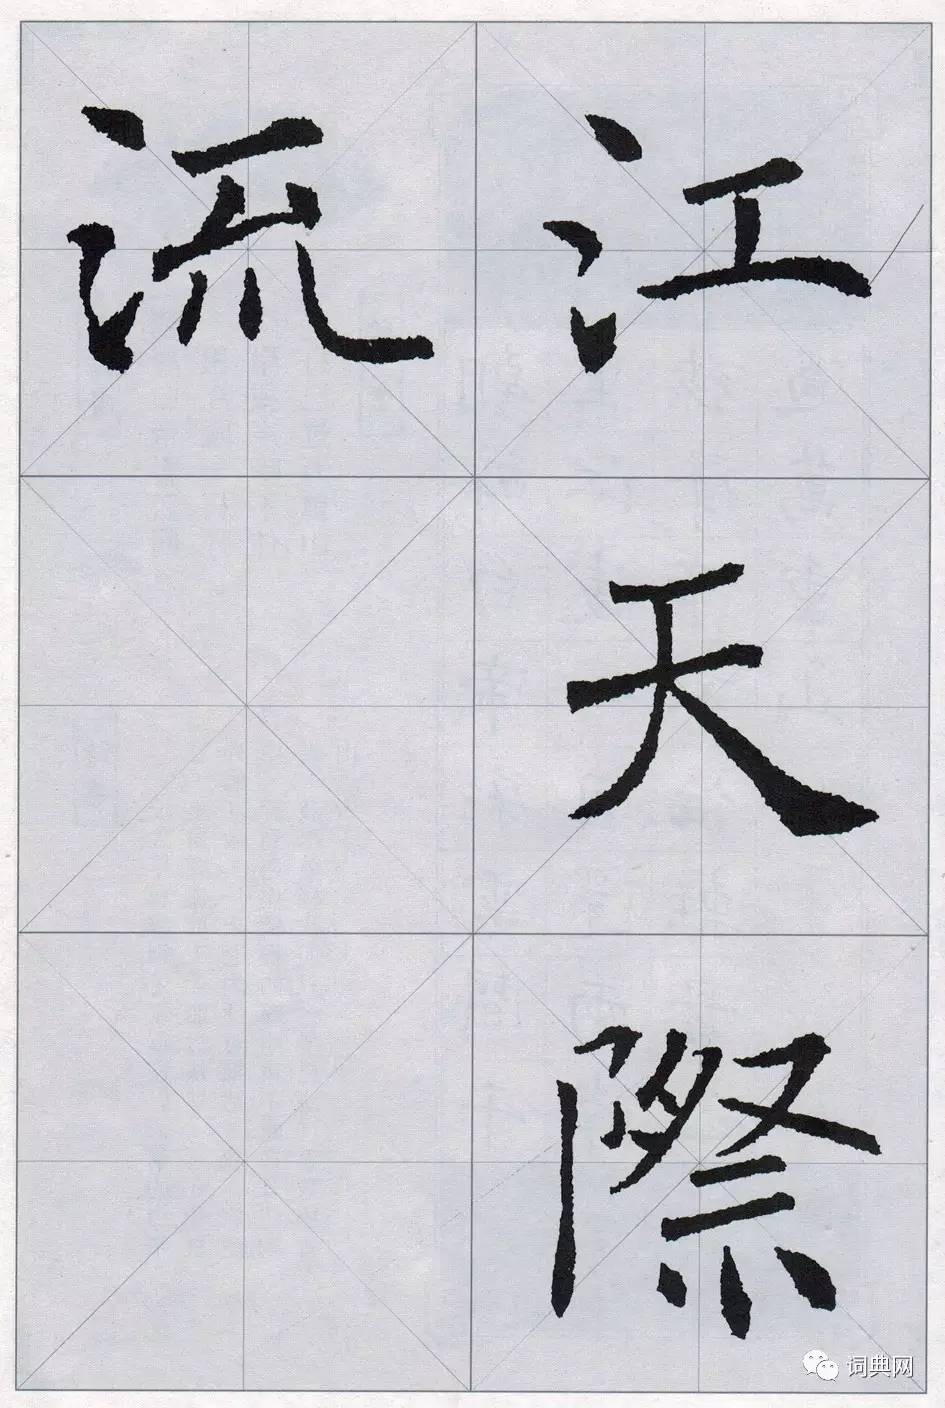 江天際
流
词典网